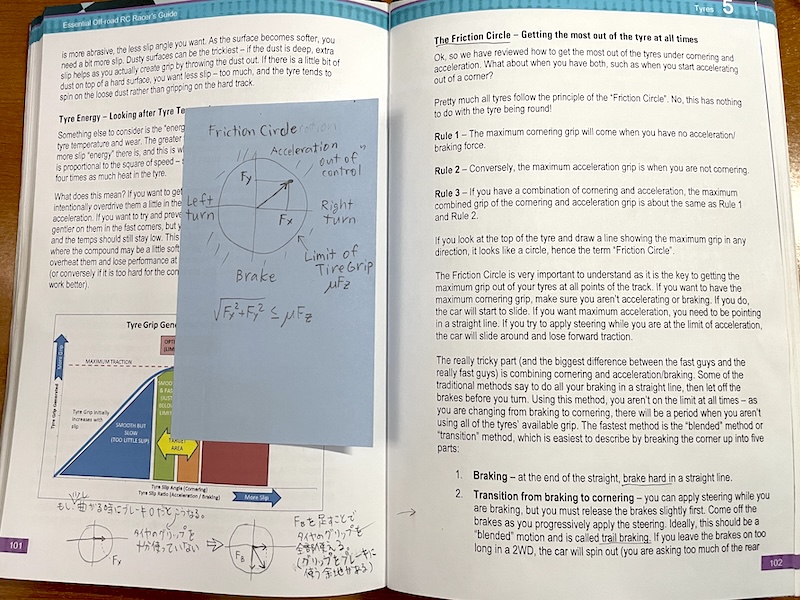 Essential Off-road RC Racer's Guide
is more abrasive, the less slip angle you want. As the surface becomes softer, you
need a bit more slip. Dusty surfaces can be the trickiest – if the dust is deep, extra
slip helps as you actually create grip by throwing the dust out. If there is a little bit of
dust on top of a hard surface, you want less slip – too much, and the tyre tends to
spin on the loose dust rather than gripping on the hard track.
Tyre Energy – Looking after Tyre Te
Something else to consider is the "energ
tyre temperature and wear. The greater
more slip "energy" there is, and this is wh
is proportional to the square of speed – s
four times as much heat in the tyre.
What does this mean? If you want to get
intentionally overdrive them a little in the
acceleration. If you want to try and preve
gentler on them in the fast corners, but y
and the temps should still stay low. This
where the compound may be a little soft
overheat them and lose performance at
(or conversely if it is too hard for the con
work better).
Friction Circle
Acceleration
"out of"
control
Fy
Left
turn
Fx
Right
turn
Limit of
Tire Grip
μFz
Brake
√Fx²+Fy² ≤ μFz
Tyre Grip Gene
More Grip
Tyre Grip Generated
MAXIMUM TRACTION
OPTI
(LIMI
Tyre Grip initially
increases with
slip
SMOOTH BUT
SLOW
(TOO LITTLE SLIP)
SMOO
& FAS
(JUST
BELO
LIMIT
TARGET
AREA
Tyre Slip Angle (Cornering)
Tyre Slip Ratio (Acceleration / Braking)
More Slip
もし、曲がる時にブレーキ0だとこうなる。
Fx
タイヤのグリップを
十分使っていない
⇒
FB
FBを足すことで
タイヤのグリップを
全部使える
(グリップをブレーキに
使う余地がある)
101
Tyres 5
The Friction Circle – Getting the most out of the tyre at all times
Ok, so we have reviewed how to get the most out of the tyres under cornering and
acceleration. What about when you have both, such as when you start accelerating
out of a corner?
Pretty much all tyres follow the principle of the "Friction Circle". No, this has nothing
to do with the tyre being round!
Rule 1 – The maximum cornering grip will come when you have no acceleration/
braking force.
Rule 2 – Conversely, the maximum acceleration grip is when you are not cornering.
Rule 3 – If you have a combination of cornering and acceleration, the maximum
combined grip of the cornering and acceleration grip is about the same as Rule 1
and Rule 2.
If you look at the top of the tyre and draw a line showing the maximum grip in any
direction, it looks like a circle, hence the term "Friction Circle".
The Friction Circle is very important to understand as it is the key to getting the
maximum grip out of your tyres at all points of the track. If you want to have the
maximum cornering grip, make sure you aren't accelerating or braking. If you do,
the car will start to slide. If you want maximum acceleration, you need to be pointing
in a straight line. If you try to apply steering while you are at the limit of acceleration,
the car will slide around and lose forward traction.
The really tricky part (and the biggest difference between the fast guys and the
really fast guys) is combining cornering and acceleration/braking. Some of the
traditional methods say to do all your braking in a straight line, then let off the
brakes before you turn. Using this method, you aren't on the limit at all times – as
you are changing from braking to cornering, there will be a period when you aren't
using all of the tyres' available grip. The fastest method is the "blended" method or
"transition" method, which is easiest to describe by breaking the corner up into five
parts:
1. Braking – at the end of the straight, brake hard in a straight line.
2. Transition from braking to cornering – you can apply steering while you
are braking, but you must release the brakes slightly first. Come off the
brakes as you progressively apply the steering. Ideally, this should be a
"blended" motion and is called trail braking. If you leave the brakes on too
long in a 2WD, the car will spin out (you are asking too much of the rear
102